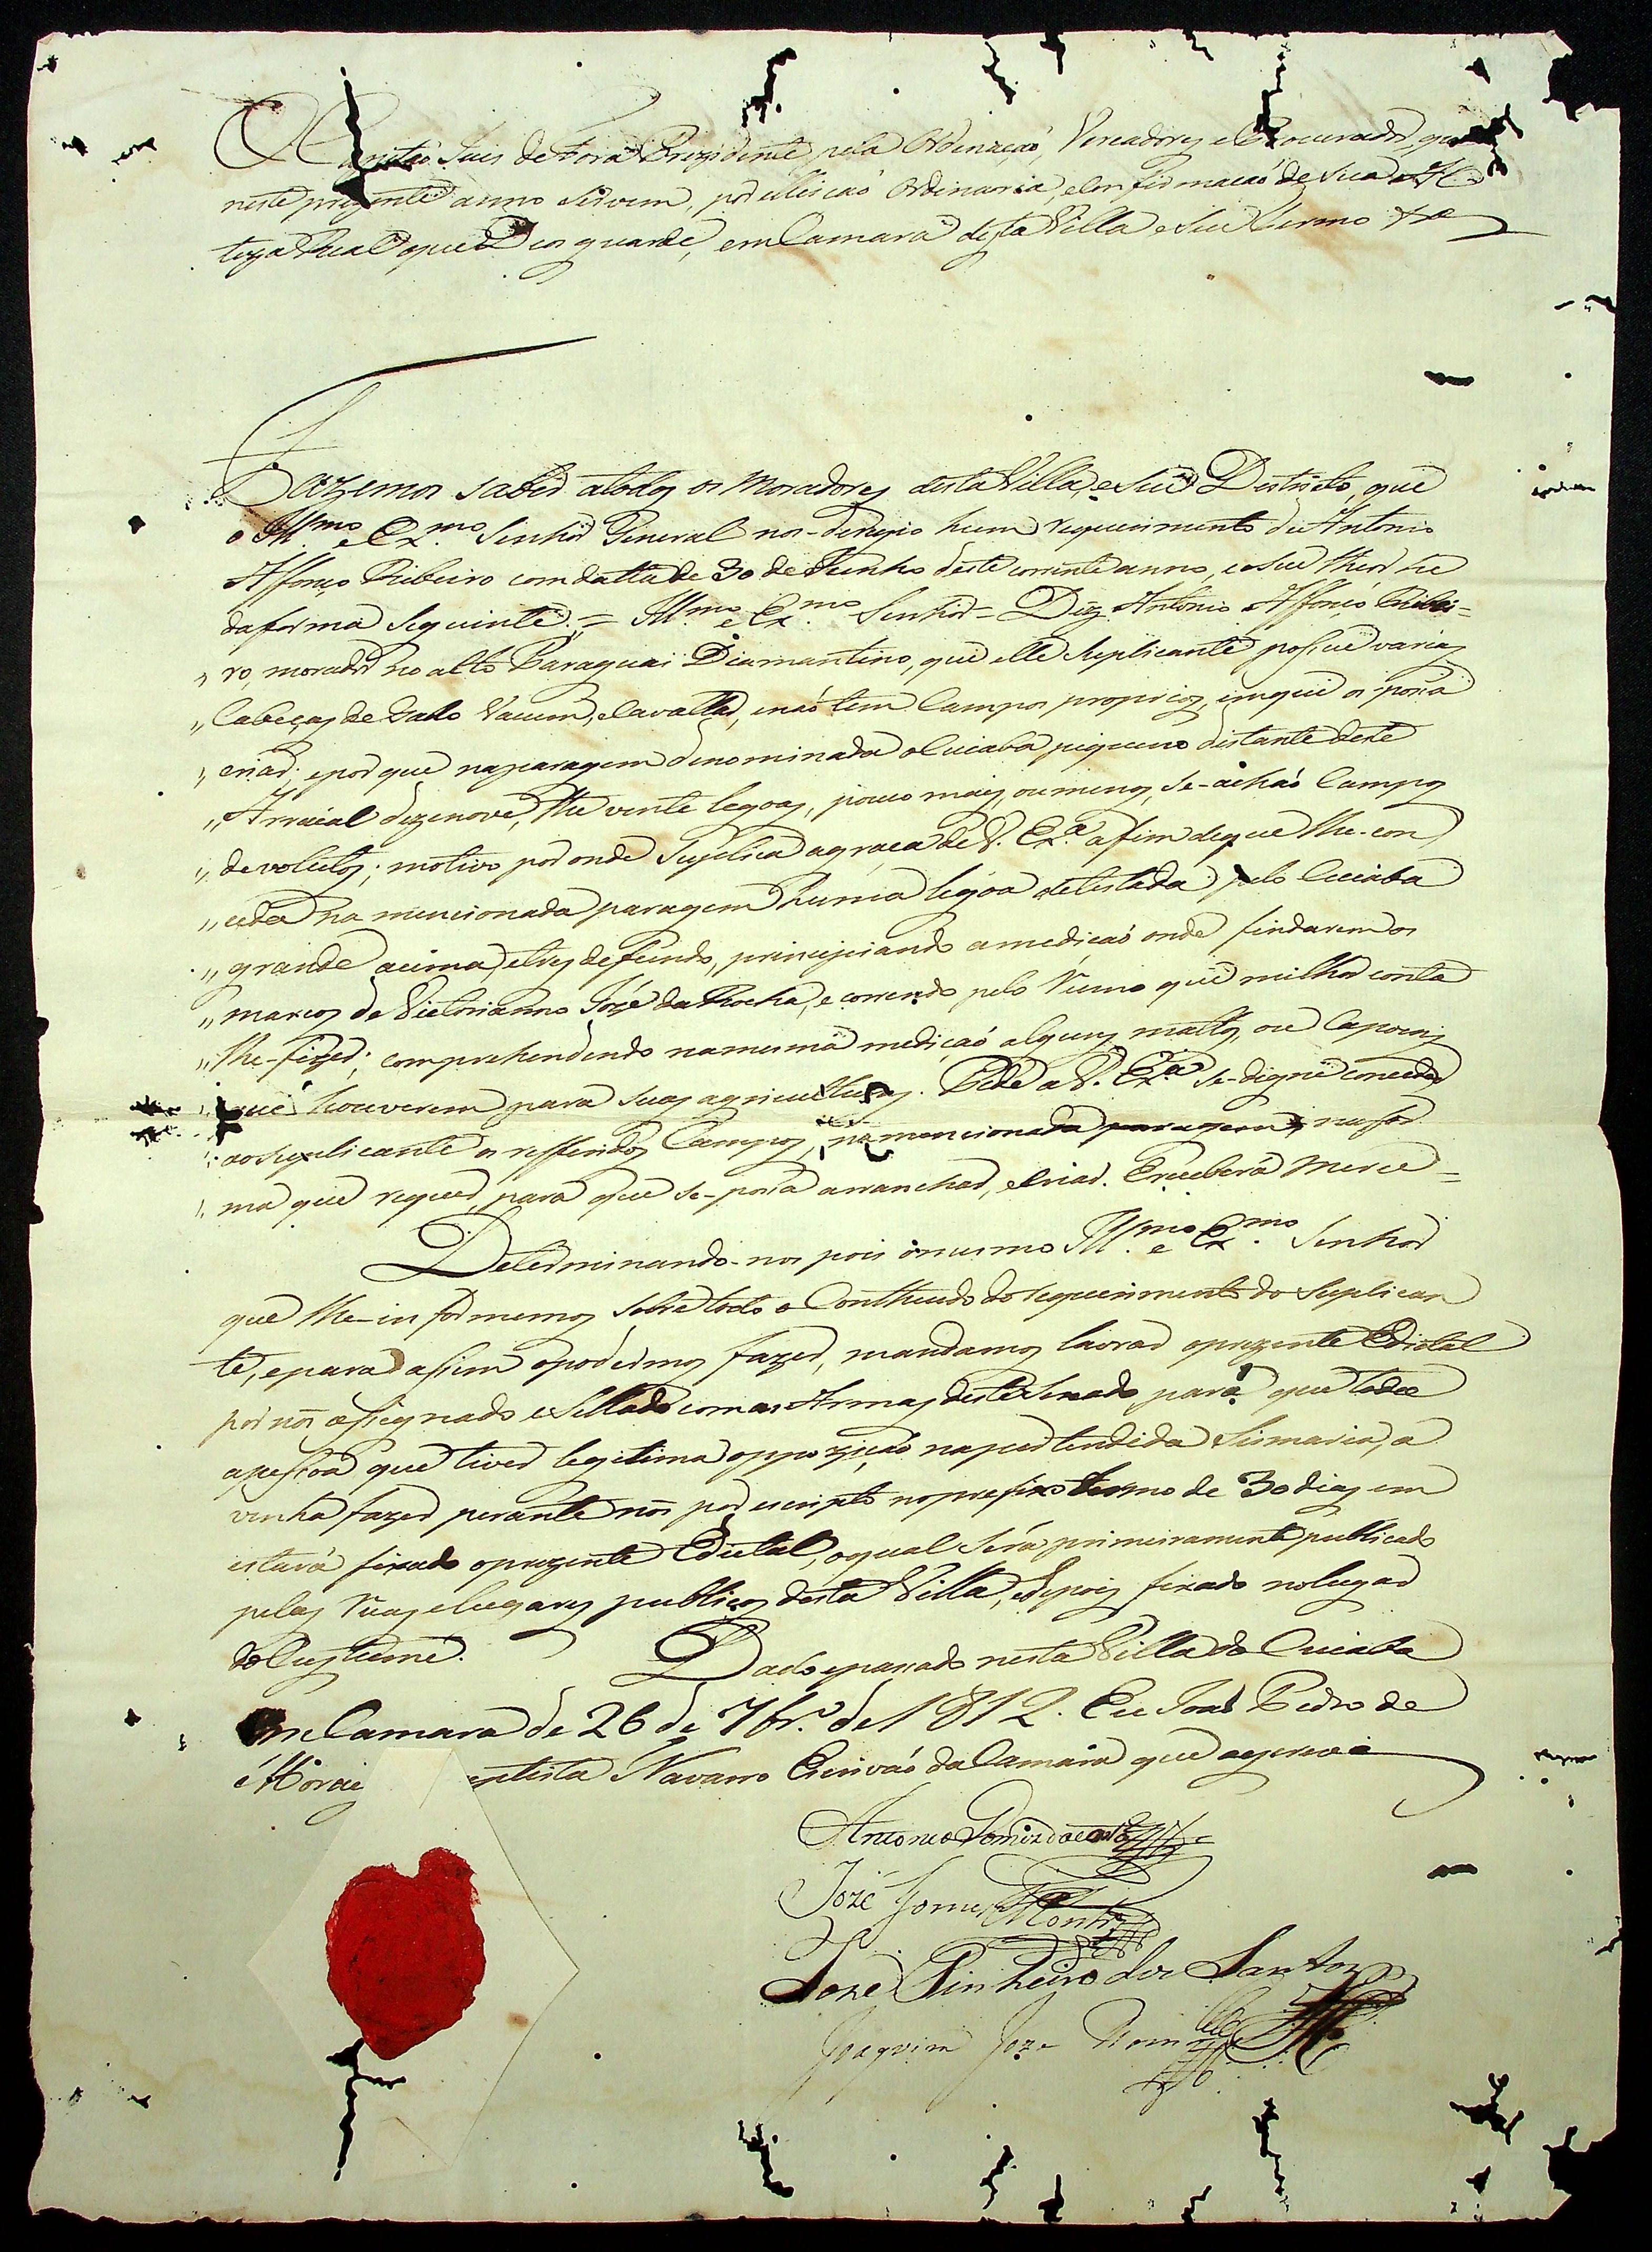 Capitaó Juis de Fora Prezidente pela Ordenaçaó, Vereadores e Procurador, que
neste prezente anno servem, por elleiçaó Ordinaria, e Confirmaçaó de Sua Al
teza Real que Deos guarde, em Camara desta Villa e Seu Termo &ª
Fazemos saber a todos os Moradores desta Villa, e Seu Destricto, que
o Ill.mo e Ex.mo Senhor General nos-deregio hum requerimento de Antonio
Affonço Ribeiro com datta de 30 de Junho deste corrente anno, e o seu theor he
da forma seguinte. = Ill.mo e Ex.mo Senhor = Diz Antonio Affonço Ribei=
" ro, morador no alto Paraguai Diamantino, que elle Suplicante possue varias
" Cabeças de Gado Vacum, e Cavallar, e naó tem Campos proprios, em que os possa
" criar; e por que na paragem denominada o Cuiaba piqueno distante deste
" Arraial dezenove, the vente legoas, pouco mais, ou menos, se-achaó Campos
" devolutos; motivo por onde Suplica a graça de V. Ex.ª a fim de que lhe-con
" ceda na mencionada paragem huma legoa de testada pelo Cuiaba
" grande acima, e tres de fundo, principiando a mediçaó onde findarem os
" marcos de Victorianno José da Rocha, e correndo pelo Rumo que milhor conta
" lhe-fizer; comprehendendo na mesma mediçaó alguns mattos, ou Capoens
" que houverem para suas agriculturas. Pede a V. Ex.ª se-digne conceder
" ao Suplicante os refferidos Campos, na mencionada paragem, na for
" ma que requer, para que se-possa arranchar, e Criar. E receberá Merce =
Determinando-nos pois o mesmo Ill.mo e Ex.mo Senhor
que lhe-informemos sobre todo o Contheudo do requerimento do Suplican
te, e para assim o podermos fazer, mandamos lavrar o prezente Edictal
por nós assignado e Sellado com as Armas deste Senado para que toda
a pessoa que tiver legitima oppoziçaó na pertendida Sismaria, a
venha fazer perante nós por escripto no prefixo termo de 30 dias em
estará fixado o prezente Edictal, o qual será primeiramente publicado
pelas Ruas e lugares publicos desta Villa, e depois fixado no lugar
do Custume. Dado e passado nesta Villa do Cuiaba
em Camara de 26 de 7br.º de 1812. Eu Joaó Pedro de
Moraes ptista Navarro Escrivaó da Camara que escrevi
Antonio
José Gomes Montr.º
Joze Pinheiro dos Santos
Joaquim Joze